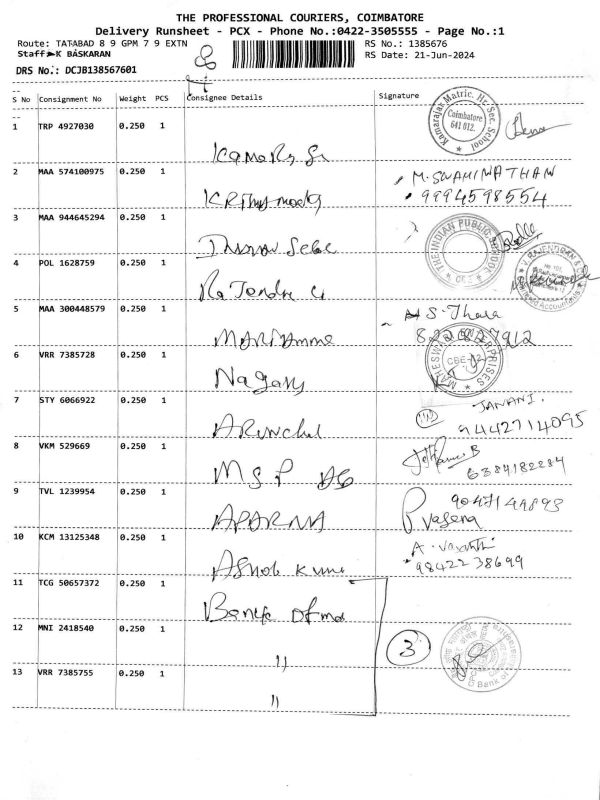 THE PROFESSIONAL COURIERS, COIMBATORE
Delivery Runsheet - PCX - Phone No.:0422-3505555 - Page No.:1
Route: TATABAD 8 9 GPM 7 9 EXTN RS No.: 1385676
Staff:K BASKARAN RS Date: 21-Jun-2024
DRS No.: DCJB138567601
S No Consignment No Weight PCS Consignee Details Signature
1 TRP 4927030 0.250 1
Kamarajar Matric. Hr. Sec. School
Coimbatore
641 012.
2 MAA 574100975 0.250 1 M. SWAMINATHAN
9994598554
3 MAA 944645294 0.250 1
THE INDIAN PUBLIC SCHOOL
4 POL 1628759 0.250 1
V. RAJENDRAN &
5 MAA 300448579 0.250 1 S. Thara
MAHESWARI ENTERPRISES
CBE-12
6 VRR 7385728 0.250 1
Nagaraj
7 STY 6066922 0.250 1 JANANI.
Arunchel 9442714095
8 VKM 529669 0.250 1
MSP 6384182284
9 TVL 1239954 0.250 1
APARNA
10 KCM 13125348 0.250 1 A. Vasanthi
Ashok Kumar 9842238699
11 TCG 50657372 0.250 1
12 MNI 2418540 0.250 1 3
" Bank of
13 VRR 7385755 0.250 1
"